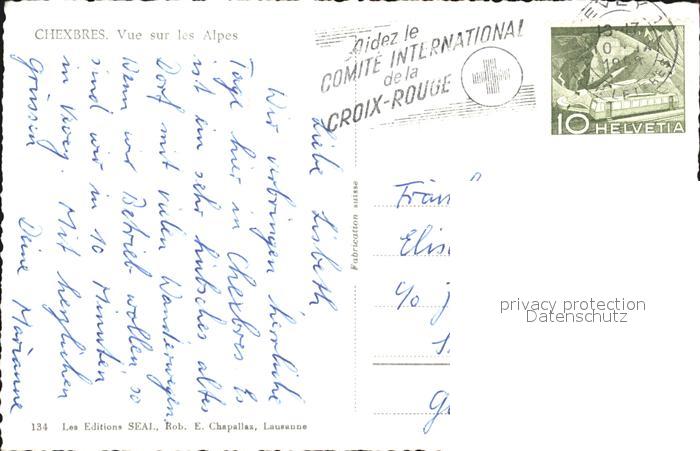 CHEXBRES. Vue sur les Alpes
Aidez le
COMITÉ INTERNATIONAL
de la
CROIX-ROUGE
10 HELVETIA
Liebe Lisbeth
Wir verbringen herrliche
Tage hier in Chexbres. Es
ist ein sehr hübsches altes
Dorf mit vielen Wanderwegen.
Wenn wir Betrieb wollen, so
sind wir in 10 Minuten
in Vevey. Mit herzlichen
Grüssen
Deine Marianne
Fabrication suisse
Fräu
Elis
c/o
privacy protection
Datenschutz
134 Les Editions SEAL, Rob. E. Chapallaz, Lausanne